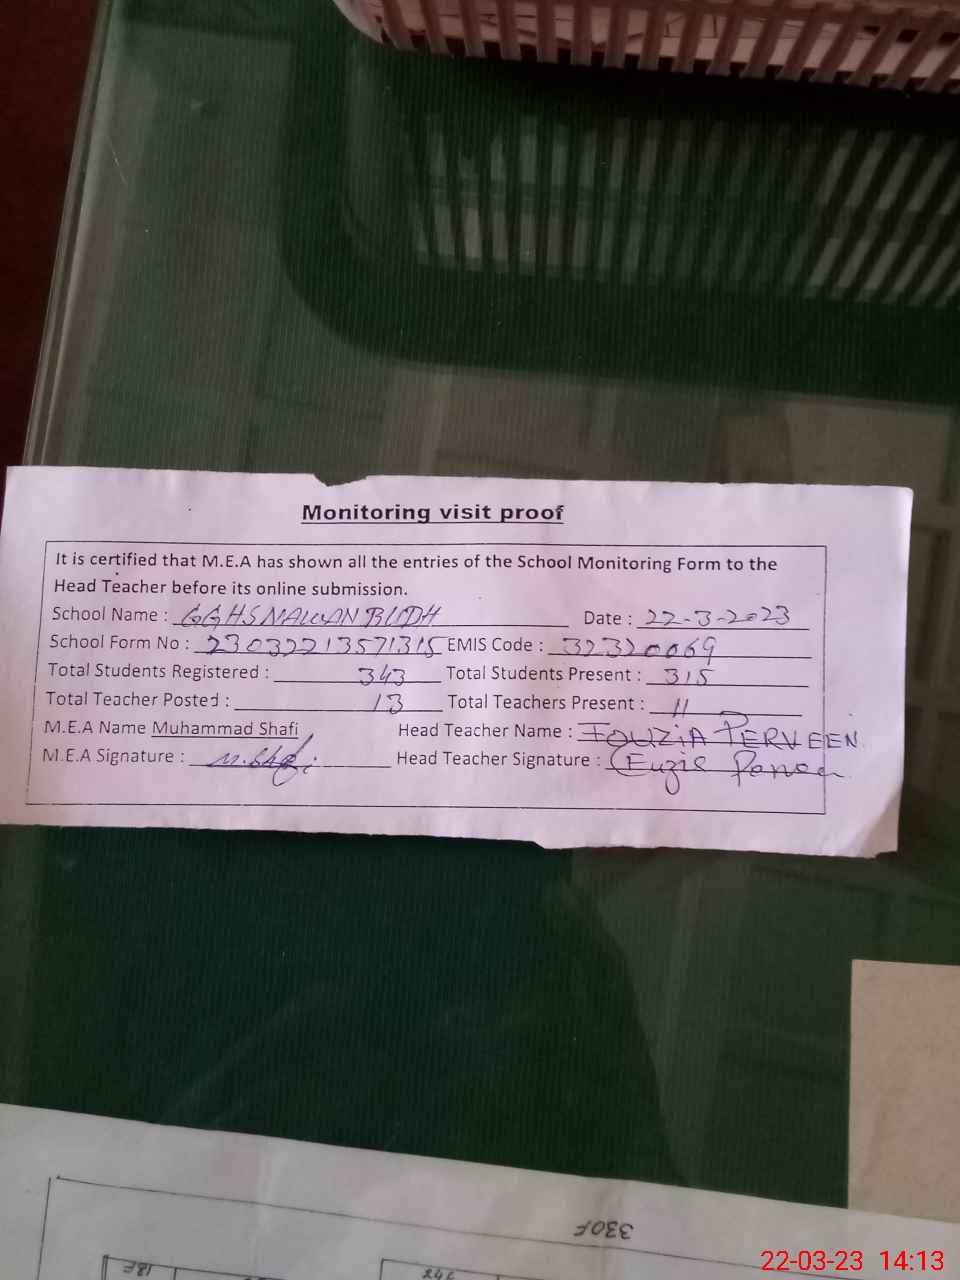 Monitoring visit proof
It is certified that M.E.A has shown all the entries of the School Monitoring Form to the
Head Teacher before its online submission.
School Name : GGHS NAWAN BUDH Date : 22-3-2023
School Form No : 23032213571315 EMIS Code : 32320069
Total Students Registered : 343 Total Students Present : 315
Total Teacher Posted : 13 Total Teachers Present : 11
M.E.A Name Muhammad Shafi Head Teacher Name : FOUZIA PERVEEN
M.E.A Signature : M. Shafi Head Teacher Signature :
330F
22-03-23 14:13